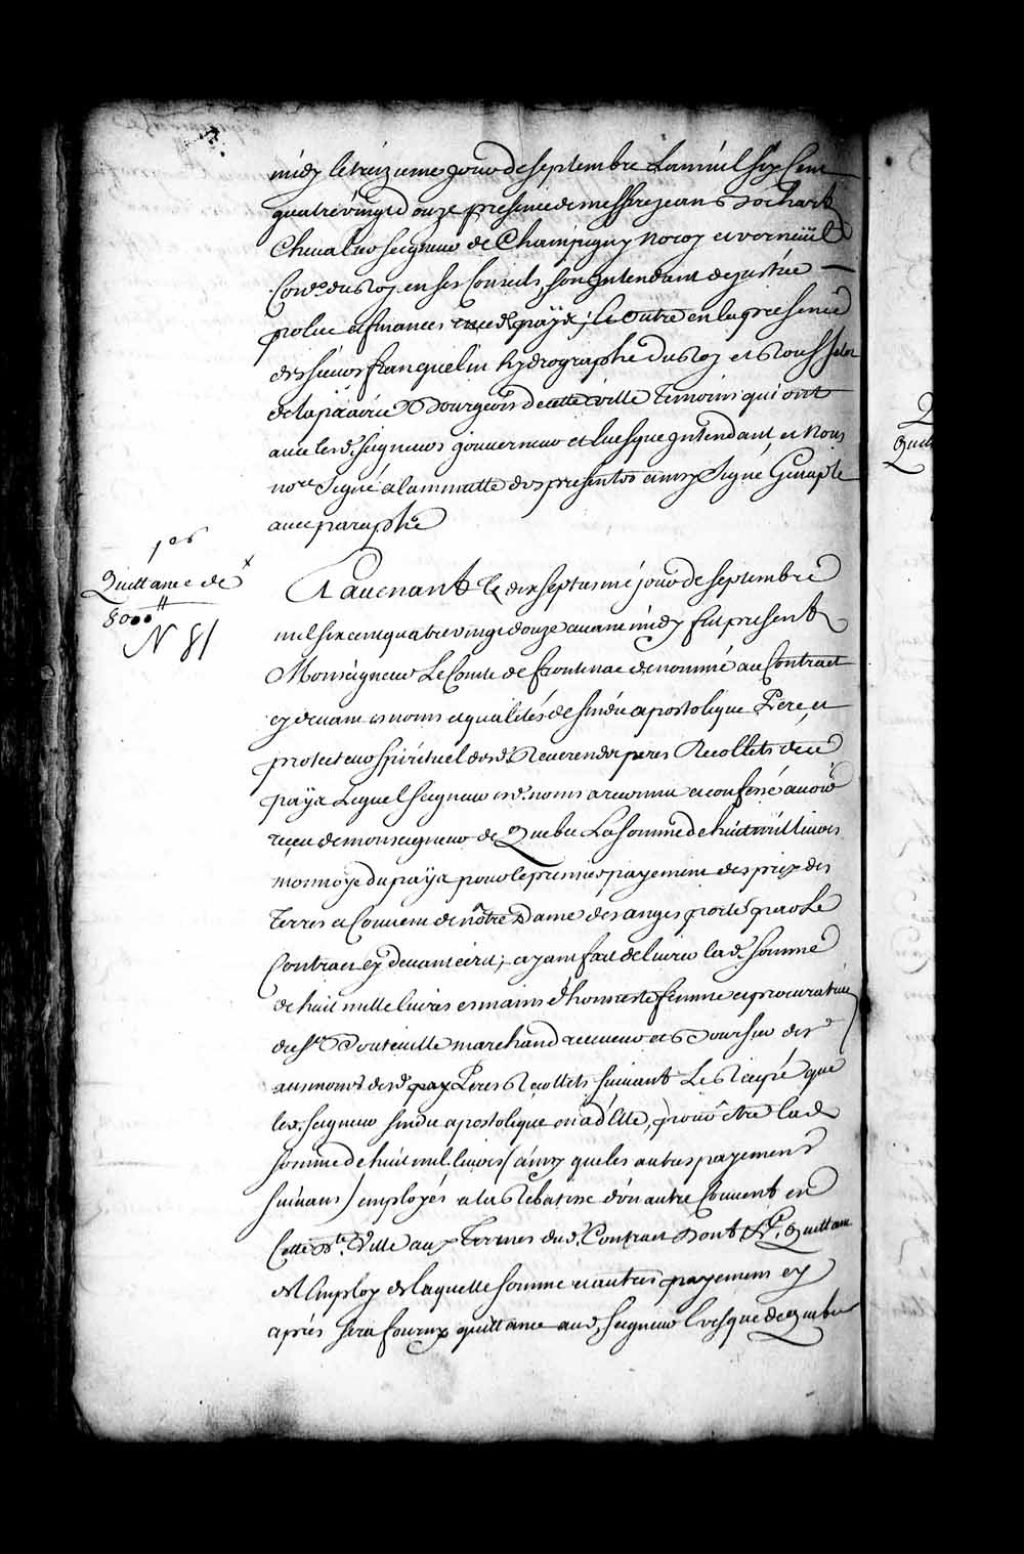 midy le treizieme jour de septembre Lan mil six Cent
quatre vingt douze presence de messire jean Bochart
Chevalier seigneur de Champigny noroy et verneüil
Con.er du Roy en ses Conseils, son jntendant de justice
police et finances en ce d. païs; le outre en la presence
des sieurs franquelin hydrographe du Roy et Rousselot
de la prairie Bourgeois de cette ville temoins qui ont
avec lesd. seigneurs gouverneur et Evesque jntendant, et Nous
no.re signé a la minutte des presentes ainsy signé Genaple
avec paraphe
1.er
Quittance de
8000 ⁑
N 81
Et avenant le dix septiesme jour de septembre
mil six cent quatre vingt douze avant midy fut present
Monseigneur Le Comte de frontenac denommé au Contract
cy devant es noms et qualités de sindic apostolique Pere, et
protecteur spirituel desd. Reverends peres Recollets de ce
païs Lequel seigneur esd. noms a reconnu et confessé avoir
reçu de monseigneur de Quebec La somme de huit mil livres
monnoye du païs pour le premier payement des prix des
terres et Convent de nôtre Dame des anges porté par Le
Contract cy devant écrit; ayant fait delivrer lad. somme
de huit mille livres es mains d'honneste femme et procuratrice
du s.r Bouteuille marchand receveur et Boursier desd.
aumones desd. Peres Recollets suivant Le Recepé que
led. seigneur sindic apostolique en a d'Elle, pour être lad.
somme de huit mil livres (ainsy que les autres payemens
suivans) employés a la Rebatisse d'un autre Convent en
Cette d.te Ville aux Termes dud. Contract Dont Quittance
et l'employ de laquelle somme et autres payemens cy
après sera fourny quittance aud. seigneur Evesque de Quebec